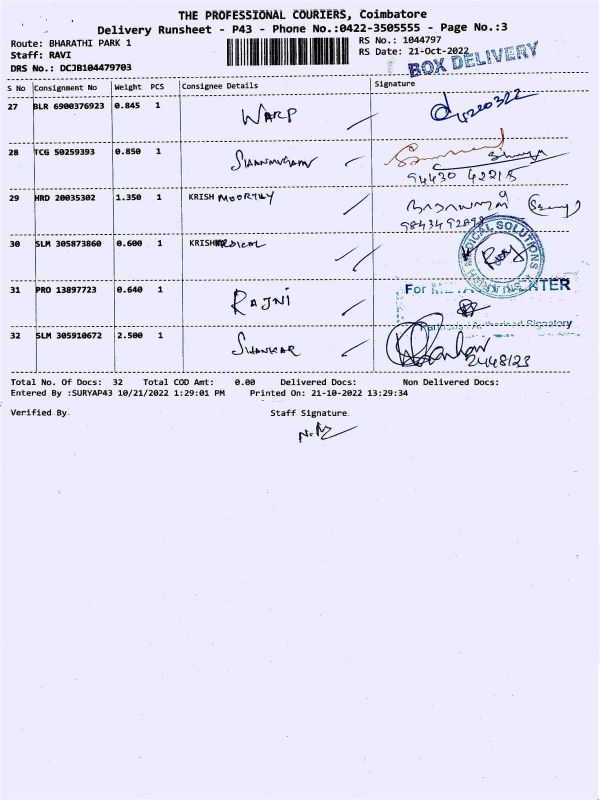 THE PROFESSIONAL COURIERS, Coimbatore
Delivery Runsheet - P43 - Phone No.:0422-3505555 - Page No.:3
Route: BHARATHI PARK 1 RS No.: 1044797
Staff: RAVI RS Date: 21-Oct-2022
DRS No.: DCJB104479703 BOX DELIVERY
S No Consignment No Weight PCS Consignee Details Signature
27 BLR 6900376923 0.845 1 WARP
28 TCG 50259393 0.850 1 SHANMUGAM
94430 42218
29 HRD 20035302 1.350 1 KRISH MOORTHY
30 SLM 305873860 0.600 1 KRISH MEDICAL MEDICAL SOLUTIONS
31 PRO 13897723 0.640 1 RAJNI For
Authorised Signatory
32 SLM 305910672 2.500 1 SHANKAR
Total No. Of Docs: 32 Total COD Amt: 0.00 Delivered Docs: Non Delivered Docs:
Entered By :SURYAP43 10/21/2022 1:29:01 PM Printed On: 21-10-2022 13:29:34
Verified By Staff Signature